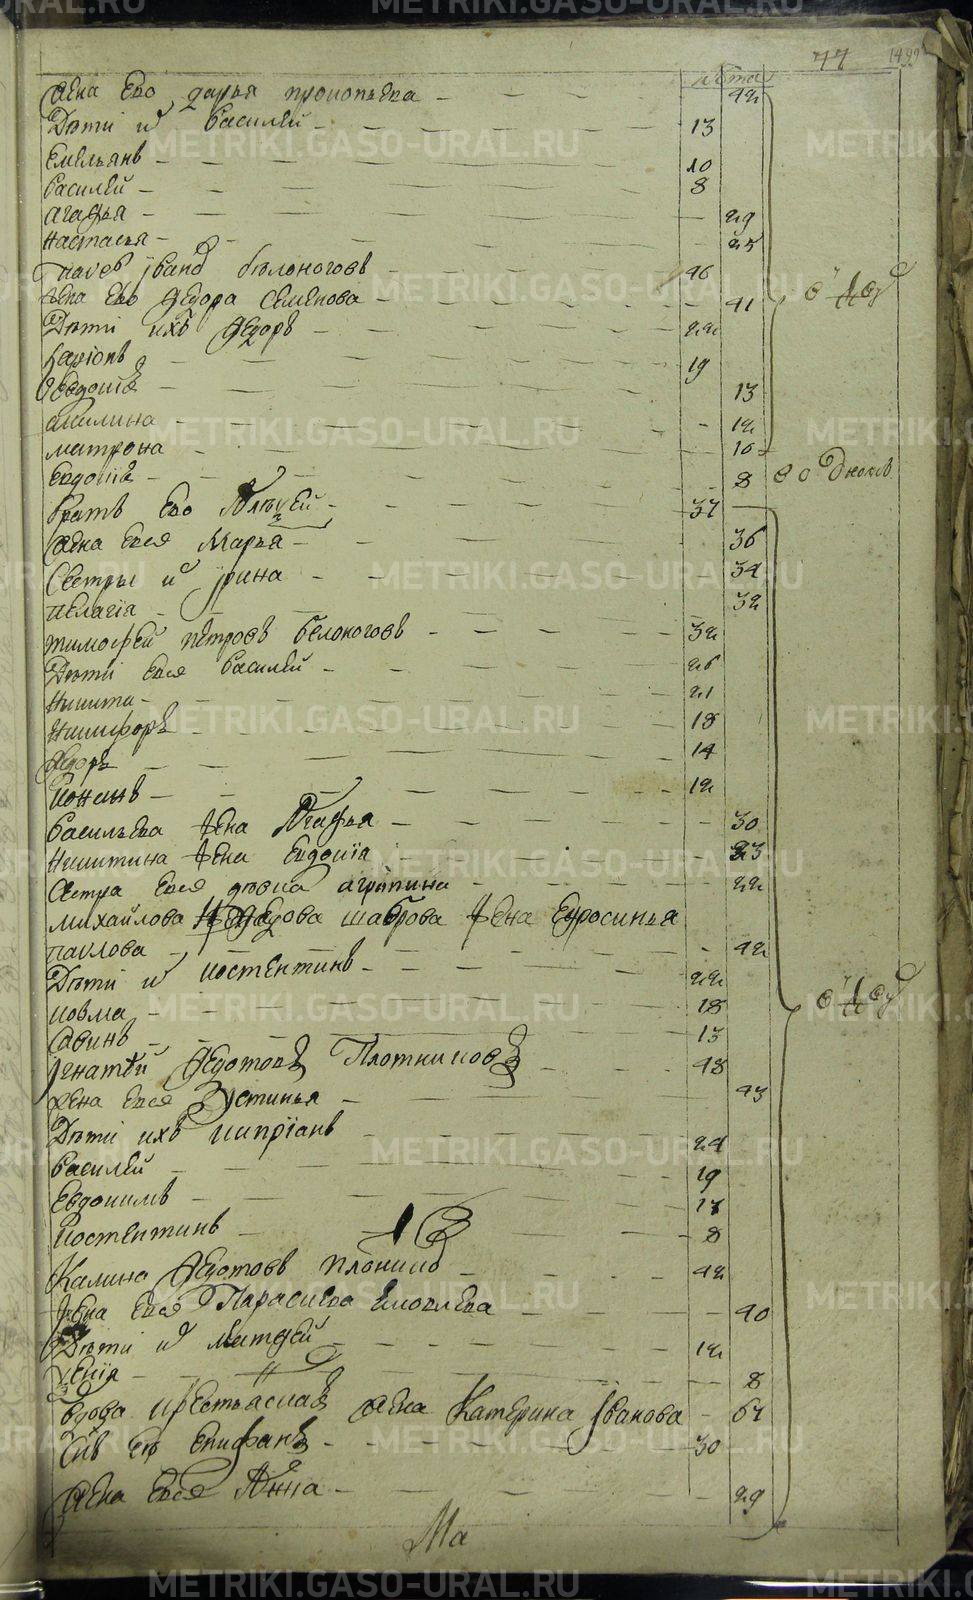 77
1499
лѣта
жена ево дарья прокопьева 42
Дѣти и васил҃ей 13
Емельянъ 10
василей 8
агафья 29
настасья 25
павел iванъ бѣлоноговъ 46
жена ево федора семенова 41
Дѣти ихъ федоръ 22
Ларiонъ 19
Овдотiя 13
акилина 12
матрона 10
Евдокiя 8
во о дноже
братъ ево Алѯей 37
жена евся Марья 36
Сестры и iрина 34
пелагiа 32
тимофей петровъ белоноговъ 32
Дѣти евся василей 26
никита 21
никифоръ 18
федоръ 14
конанъ 12
васильева жена Агафья 30
никитина жена евдокiа 23
сестра евся девка агрипина 22
михайлова федорова шаброва жена Ефросинья
павлова 42
Дѣти и костентинъ 22
козма 18
савинъ 13
iгнатей федотовъ Плотниковъ 48
жена евся Устинья 43
Дѣти ихъ киприанъ 24
василей 19
Евдокимъ 17
костентинъ 8
Калина федотовъ плотнико 42
жена евся Парасковья яковлева 40
Дѣти и матфей 12
ксенiя 8
вдова крестьяская жена Катерина iванова 67
сынъ ея епифанъ 30
жена евся Анна 29
Ма
METRIKI.GASO-URAL.RU